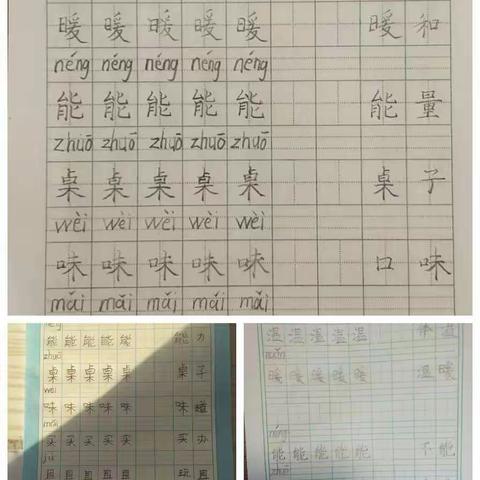 暖 暖 暖 暖 暖 暖 和
néng néng néng néng néng
能 能 能 能 能 能 量
zhuō zhuō zhuō zhuō zhuō
桌 桌 桌 桌 桌 桌 子
wèi wèi wèi wèi wèi
味 味 味 味 味 口 味
mǎi mǎi mǎi mǎi mǎi
能 能 能 能 能 能 力
zhuō
桌 桌 桌 桌 桌 桌 子
wèi
味 味 味 味 味 味 道
mǎi
买 买 买 买 买 买 办
jù
具 具 具 具 具 玩 具
温 温 温 温 温
nuǎn
暖 暖 暖 暖 暖 温 暖
néng
能 能 能 能 能 不 能
zhuō